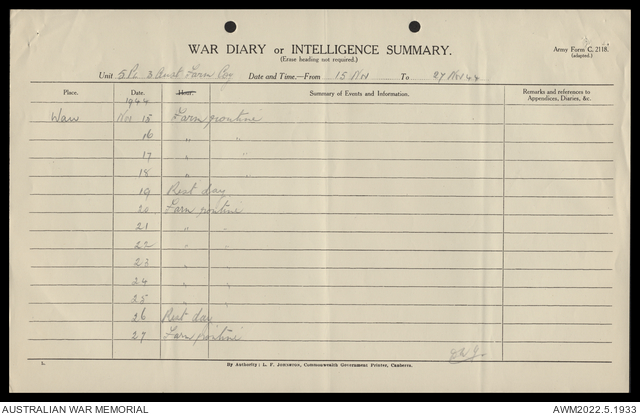 WAR DIARY or INTELLIGENCE SUMMARY.
(Erase heading not required.)
Army Form C. 2118.
(adapted.)
Unit 5 Pl 3 Aust Farm Coy Date and Time.—From 15 Nov To 27 Nov 44
Place. Date. Hour. Summary of Events and Information. Remarks and references to Appendices, Diaries, &c.
1944
Waw Nov 15 Farm routine
16 " "
17 " "
18 " "
19 Rest day
20 Farm routine
21 " "
22 " "
23 " "
24 " "
25 " "
26 Rest day
27 Farm routine
1. By Authority: L. F. JOHNSTON, Commonwealth Government Printer, Canberra.
AUSTRALIAN WAR MEMORIAL AWM2022.5.1933